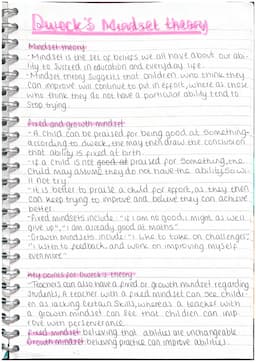 Dweck's Mindset theory
Mindset theory
- Mindset is the set of beliefs we all have about our abi-
lity to succeed in education and everyday life.
- Mindset theory suggests that children who think they
can improve will continue to put in effort, where as those
who think they do not have a particular ability tend to
stop trying.
Fixed and growth mindset
- A child can be praised for being good at something,
according to dweck, she may then draw the conclusion
that ability is fixed at birth.
- If a child is not good at praised for something, the
child may assume they do not have the ability so wi-
ll not try.
- It is better to praise a child for effort, as they then
can keep trying to improve and believe they can achieve
better.
- Fixed mindsets include: "if I am no good, might as well
give up", "I am already good at maths"
- Growth mindsets include: "I like to take on challenges",
"I listen to feedback, and work on improving myself
even more"
for Dweck's theory
- Teachers can also have a fixed or growth mindset regarding
students, A teacher with a fixed mindset can see childr-
en as lacking certain skills, whereas a teacher with
a growth mindset can see that children can imp-
rove with perserverance.
Fixed mindset believing that abilities are unchangeable
Growth mindset believing practice can improve abilities.